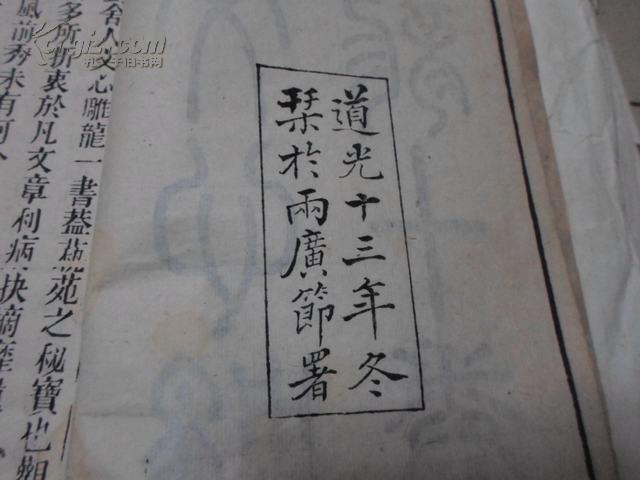 道光十三年冬
栞於兩廣節署
舍人文心雕龍一書葢蓺苑之秘寶也觀
多所折衷於凡文章利病抉摘靡
風前秀未有可
孔夫子旧书网